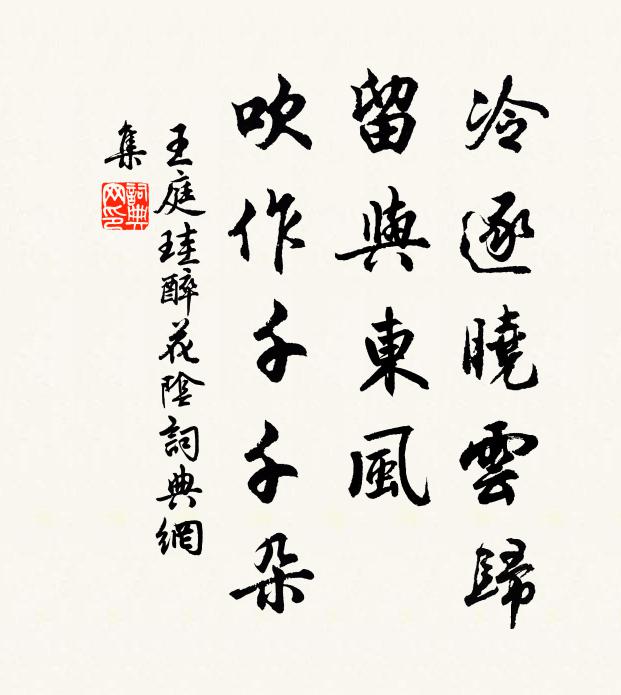 冷逐曉雲歸
留與東風
吹作千千朵
王庭珪醉花陰詞典網
集
詞典
網印